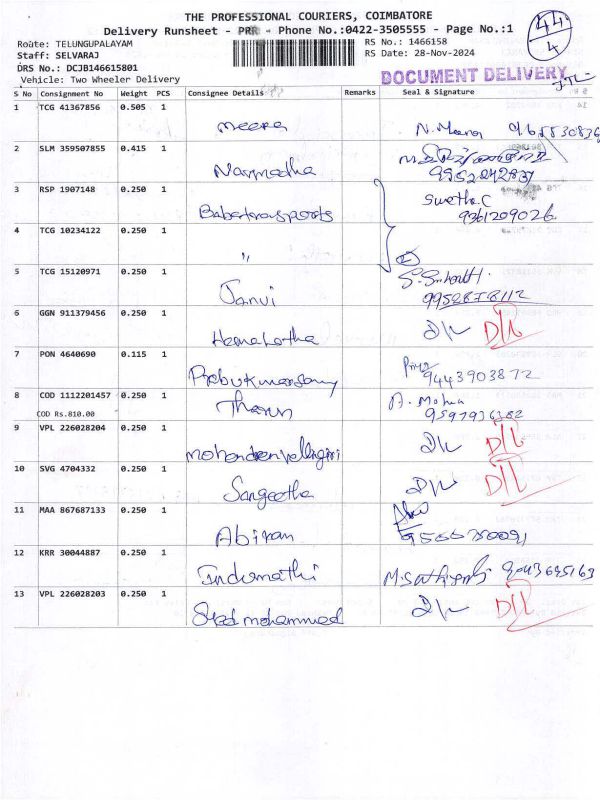 THE PROFESSIONAL COURIERS, COIMBATORE
Delivery Runsheet - PRR - Phone No.:0422-3505555 - Page No.:1
44
4
Route: TELUNGUPALAYAM
RS No.: 1466158
Staff: SELVARAJ
RS Date: 28-Nov-2024
DRS No.: DCJB146615801
DOCUMENT DELIVERY
Vehicle: Two Wheeler Delivery
S No Consignment No Weight PCS Consignee Details Remarks Seal & Signature
1 TCG 41367856 0.505 1
meera N. Meena
2 SLM 359507855 0.415 1
Narmedha 9952042837
3 RSP 1907148 0.250 1
Swetha.C
9361209026
4 TCG 10234122 0.250 1
"
5 TCG 15120971 0.250 1
Janvi
6 GGN 911379456 0.250 1
Hemalatha D/L D/L
7 PON 4640690 0.115 1
Priya
Prabukumarsamy 9443903872
8 COD 1112201457 0.250 1
COD Rs.810.00 Tharun A. Mohna
9597936382
9 VPL 226028204 0.250 1
D/L D/L
10 SVG 4704332 0.250 1
Sangeetha D/L D/L
11 MAA 867687133 0.250 1
Abiram
12 KRR 30044887 0.250 1
Indumathi 9043695163
13 VPL 226028203 0.250 1
Syed mohammed D/L D/L